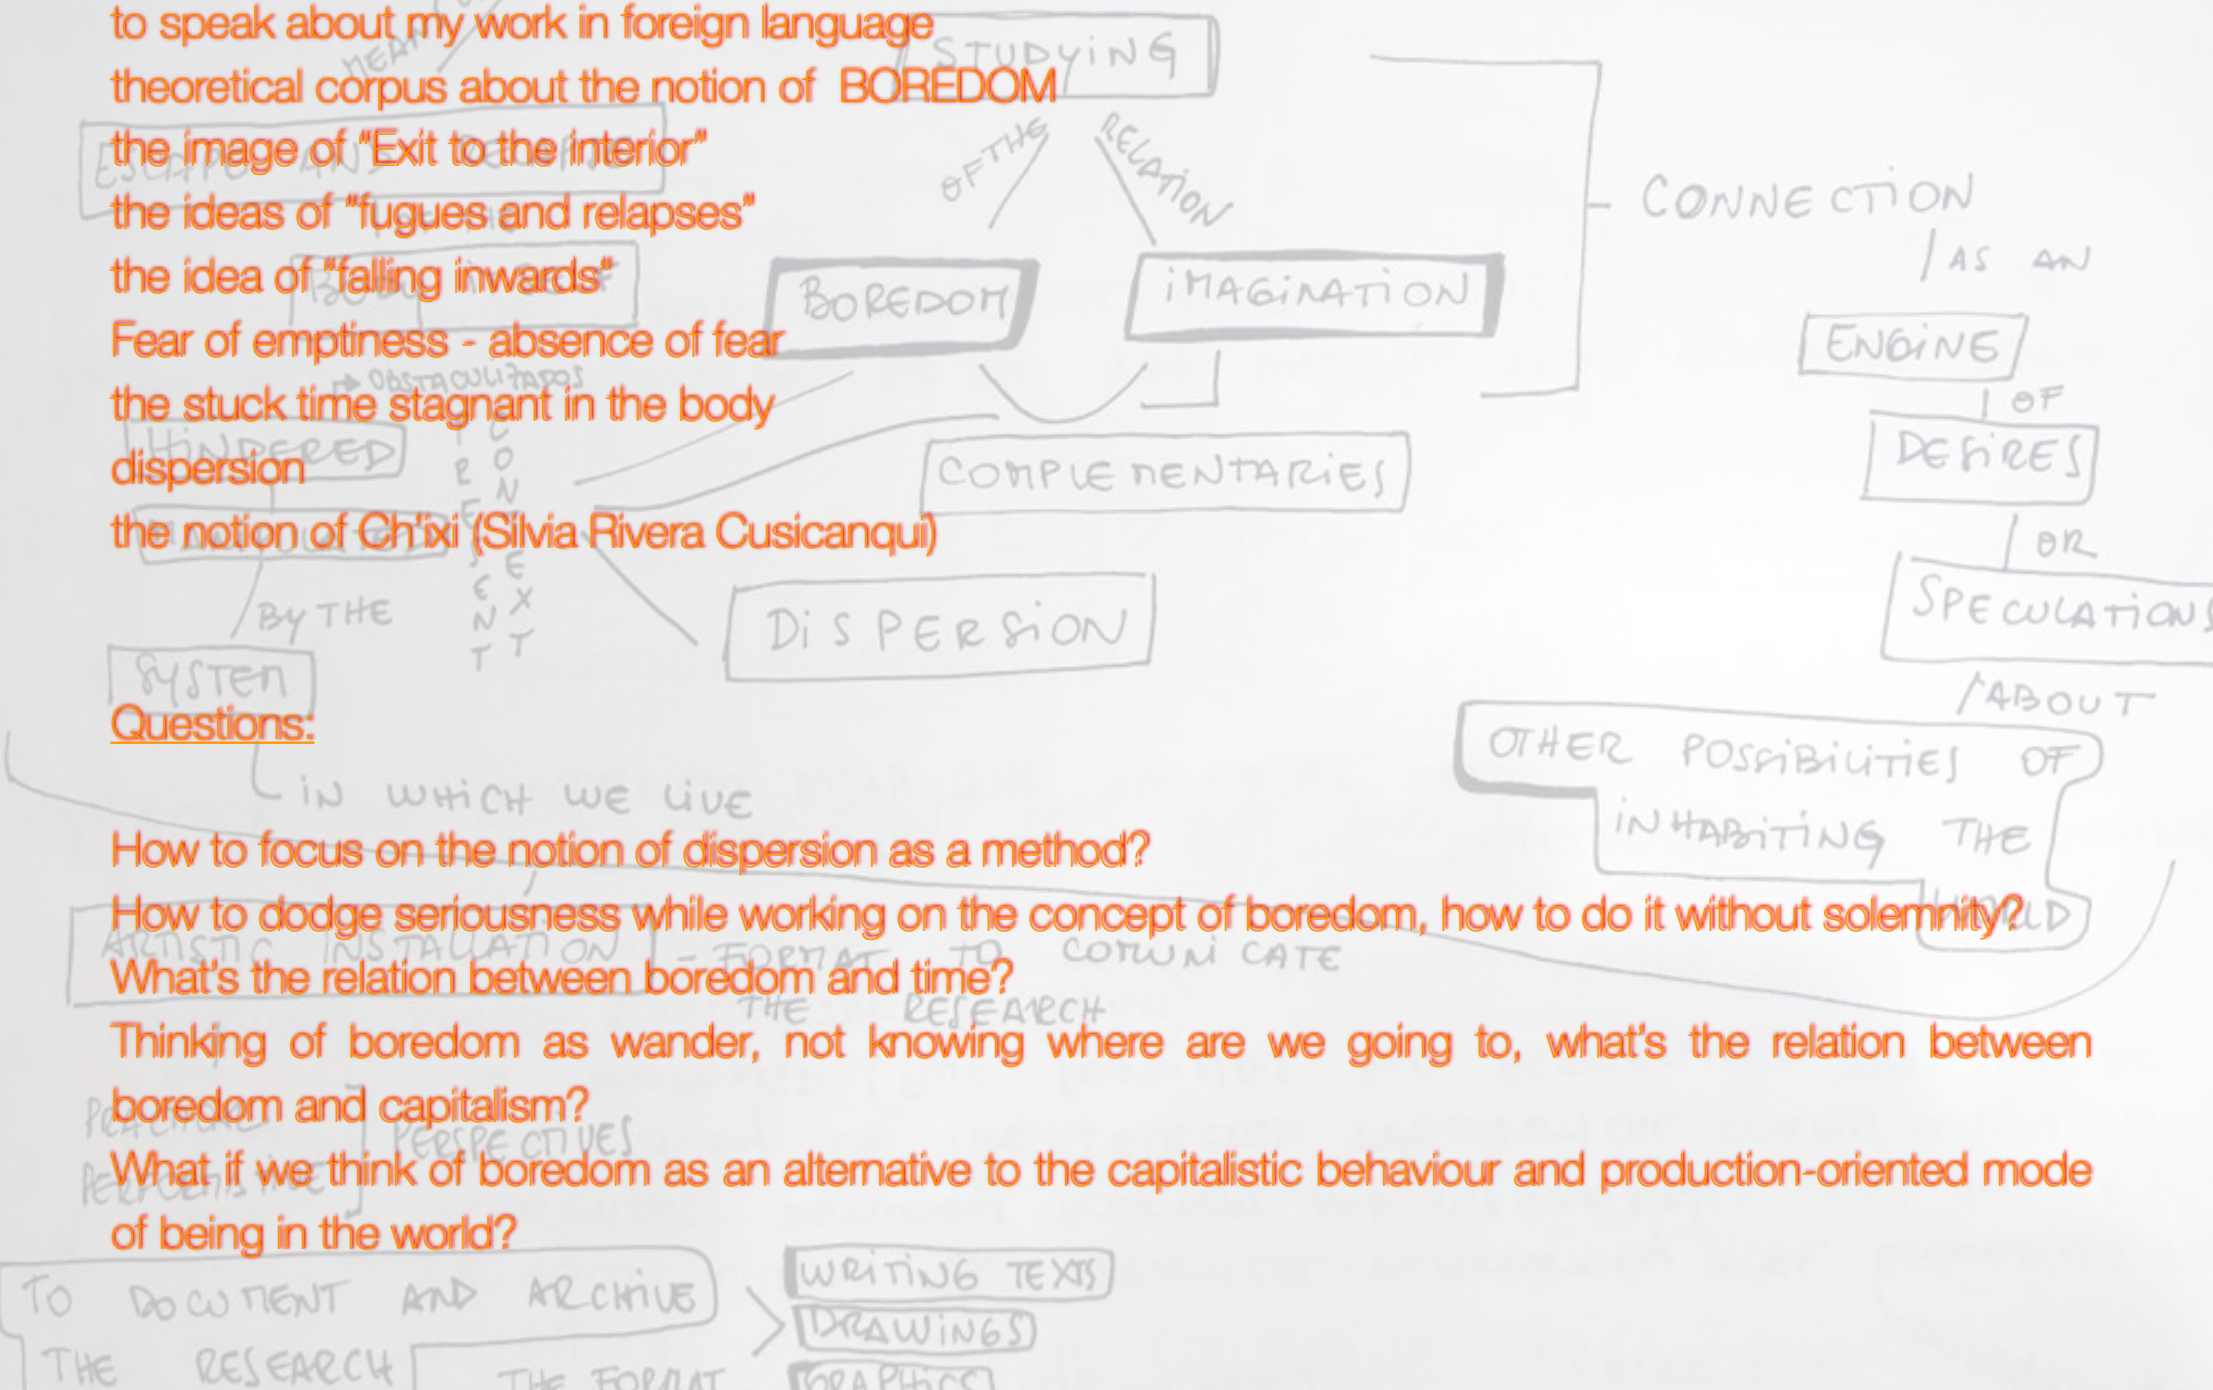 to speak about my work in foreign language
theoretical corpus about the notion of BOREDOM
the image of "Exit to the interior"
the ideas of "fugues and relapses"
the idea of "falling inwards"
Fear of emptiness - absence of fear
the stuck time stagnant in the body
dispersion
the notion of Ch'ixi (Silvia Rivera Cusicanqui)
Questions:
How to focus on the notion of dispersion as a method?
How to dodge seriousness while working on the concept of boredom, how to do it without solemnity?
What's the relation between boredom and time?
Thinking of boredom as wander, not knowing where are we going to, what's the relation between
boredom and capitalism?
What if we think of boredom as an alternative to the capitalistic behaviour and production-oriented mode
of being in the world?
STUDYING
OF THE
RELATION
BOREDOM
IMAGINATION
COMPLEMENTARIES
DISPERSION
CONNECTION
AS AN
ENGINE
OF
DESIRES
OR
SPECULATIONS
ABOUT
OTHER POSSIBILITIES OF
INHABITING THE
WORLD
ESCAPE AND
OBSTACULIZADOS
HINDERED
PRESENT
CONTEXT
BY THE
SYSTEM
IN WHICH WE LIVE
ARTISTIC INSTALLATION - FORMAT TO COMUNICATE
THE RESEARCH
PERSPECTIVES
TO DOCUMENT AND ARCHIVE
THE RESEARCH
THE FORMAT
WRITING TEXTS
DRAWINGS
GRAPHICS